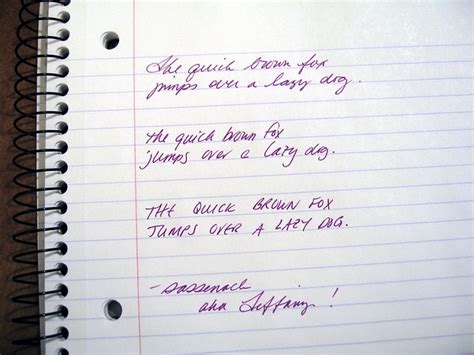 The quick brown fox
jumps over a lazy dog.
the quick brown fox
jumps over a lazy dog.
THE QUICK BROWN FOX
JUMPS OVER A LAZY DOG.
- sassenach
aka Tiffany!